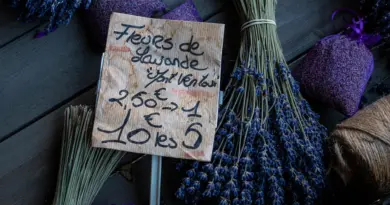 Fleurs de
Lavande
"Mont Ventoux"
2,50€ → 1
10€ les 5